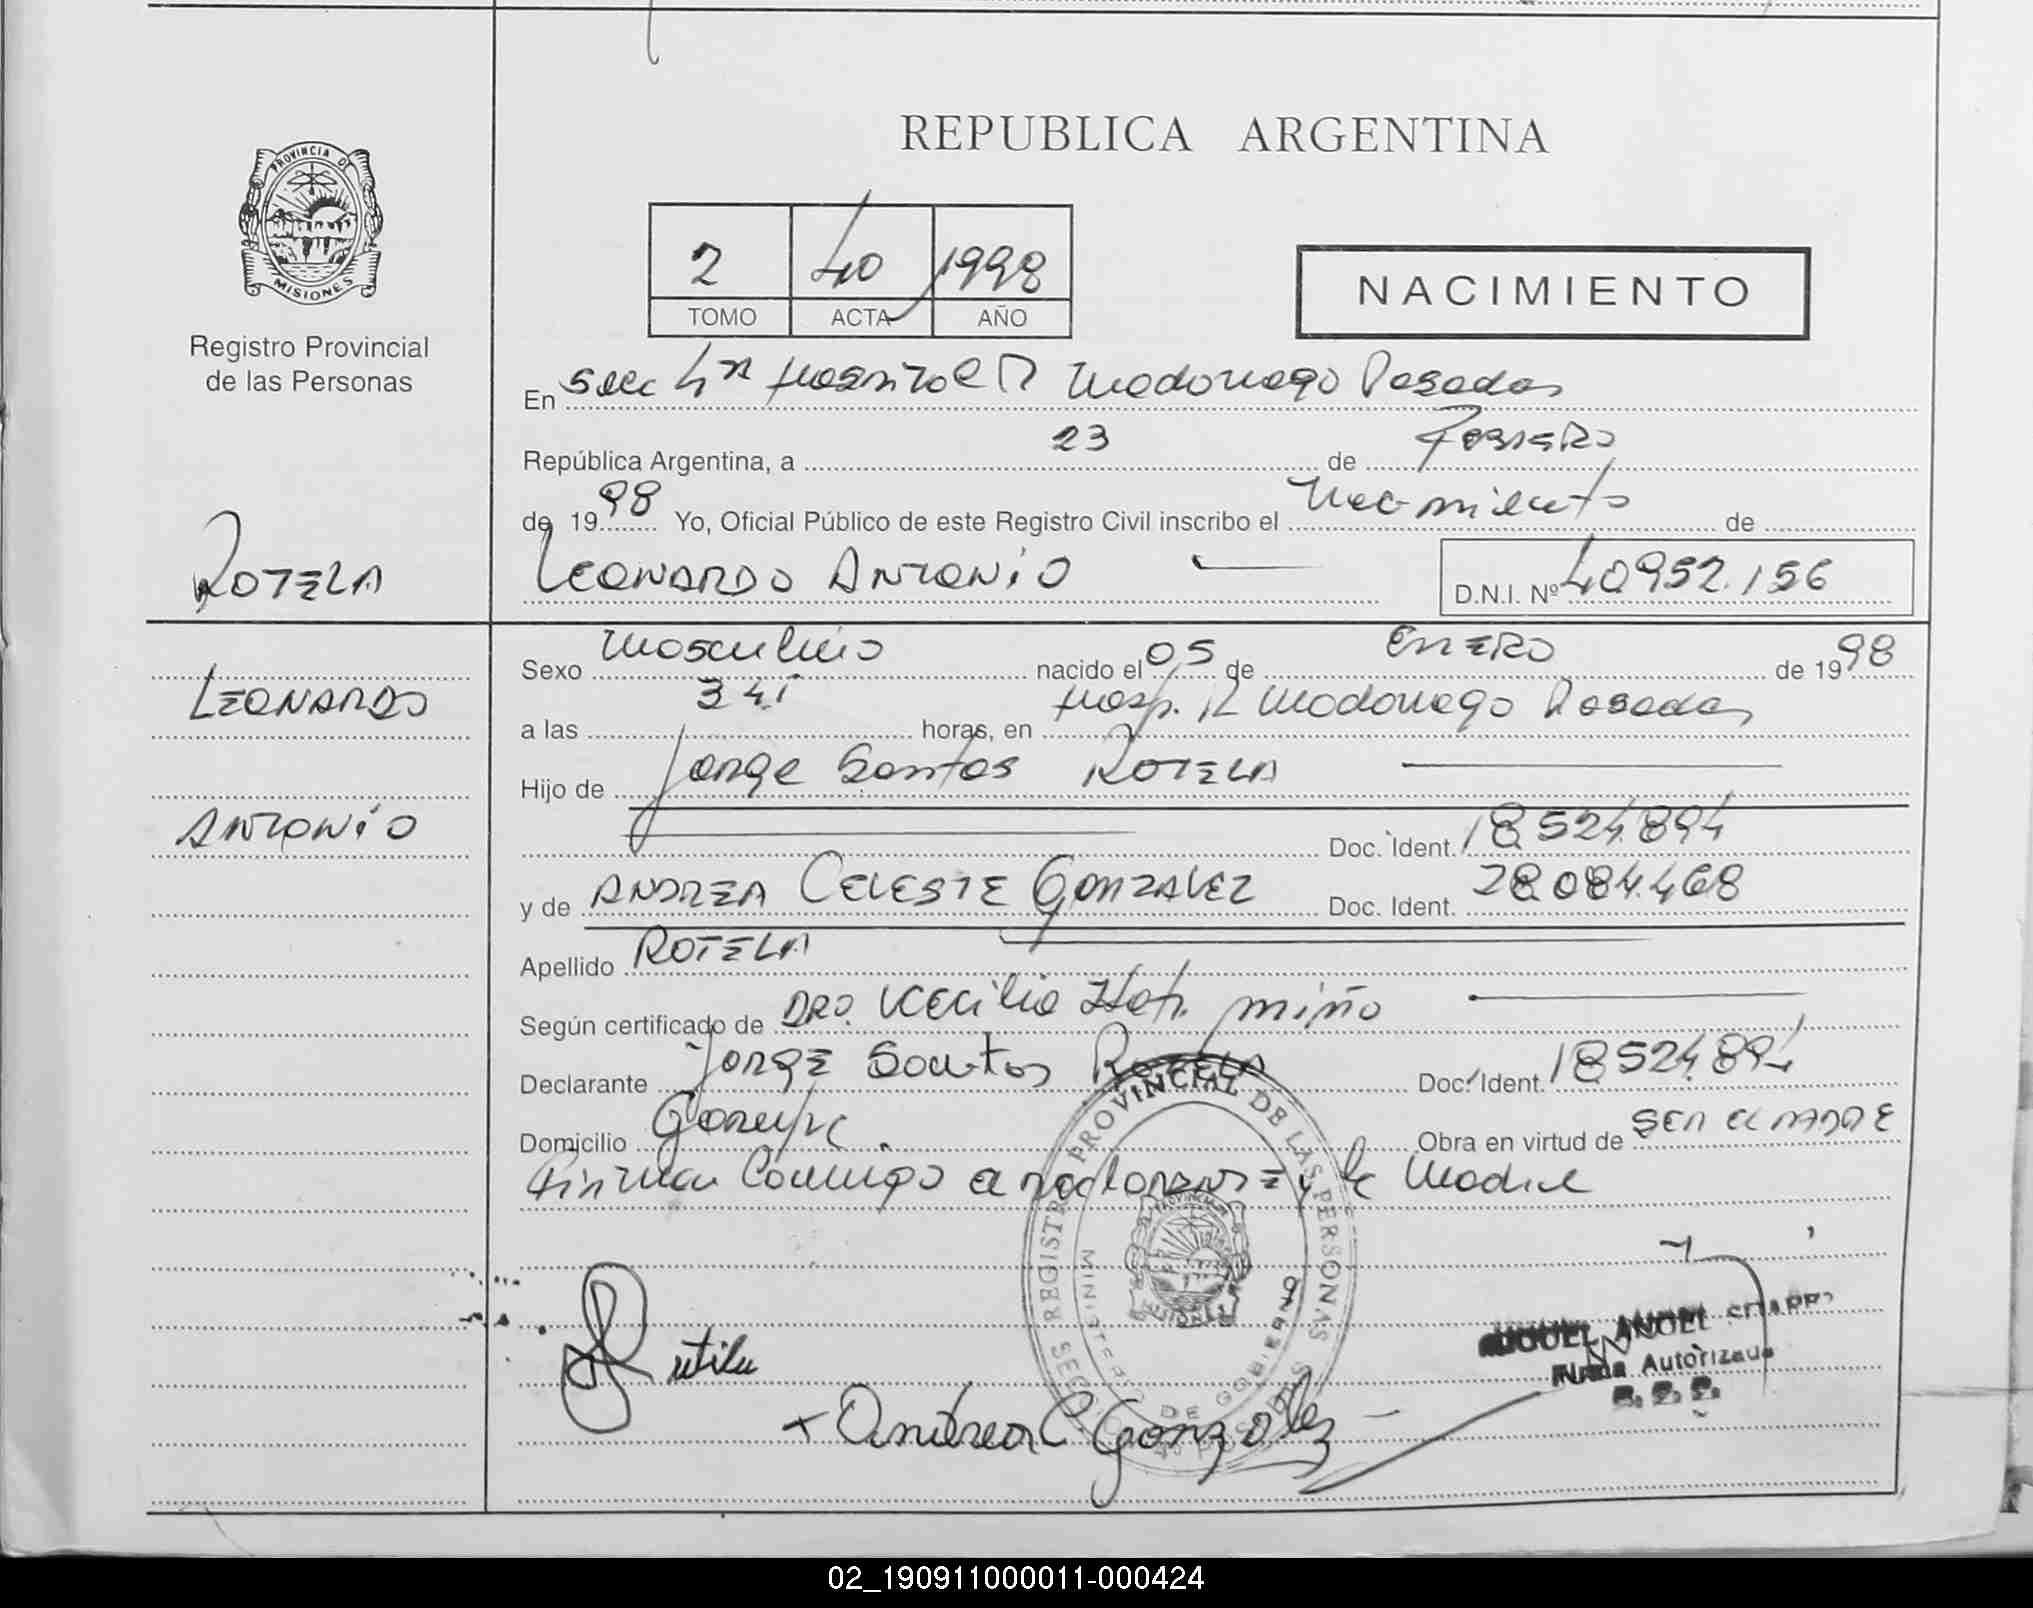 REPUBLICA ARGENTINA
PROVINCIA DE
MISIONES
Registro Provincial
de las Personas
2 40 1998
TOMO ACTA AÑO
NACIMIENTO
En Secc 4ª Hospital R Madariaga Posadas
República Argentina, a 23 de Febrero
de 1998 Yo, Oficial Público de este Registro Civil inscribo el Nacimiento de
ROTELA
LEONARDO ANTONIO
D.N.I. Nº 40952.156
LEONARDO
ANTONIO
Sexo Masculino nacido el 05 de ENERO de 1998
a las 341 horas, en Hosp. R Madariaga Posadas
Hijo de Jorge Santos ROTELA
Doc. Ident. 18524894
y de ANDREA CELESTE GONZALEZ Doc. Ident. 28.084.468
Apellido ROTELA
Según certificado de DRA. Cecilia Miño
Declarante JORGE Santos ROTELA Doc. Ident. 18524894
Domicilio Garupá. Obra en virtud de SER EL PADRE
Firman Conmigo el declarante y la Madre
REGISTRO PROVINCIAL DE LAS PERSONAS
MINISTERIO DE GOBIERNO
MIGUEL ANGEL
Firma Autorizada
Andrea C Gonzalez
02_190911000011-000424